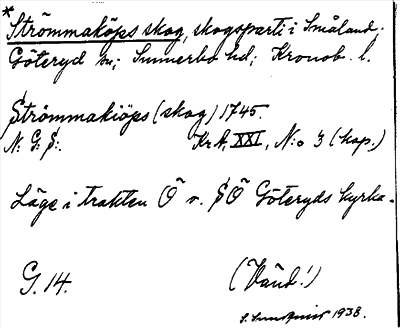 *Strömmaköps skog, skogsparti i Småland;
Göteryd sn; Sunnerbo hd; Kronob. l.
Strömmakiöps (skog) 1745.
N: G: S:. Kr.A. XXI, N:o 3 (kop.)
Läge i trakten Ö v. SÖ Göteryds kyrka.
G. 14. (Vänd!)
S. 1938.